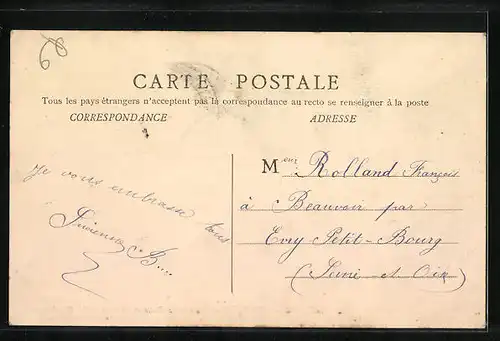 68
CARTE POSTALE
Tous les pays étrangers n'acceptent pas la correspondance au recto se renseigner à la poste
CORRESPONDANCE
ADRESSE
Je vous embrasse tous
B...
Meur Rolland François
à Beauvoir par
Evry Petit-Bourg
(Seine et Oise)